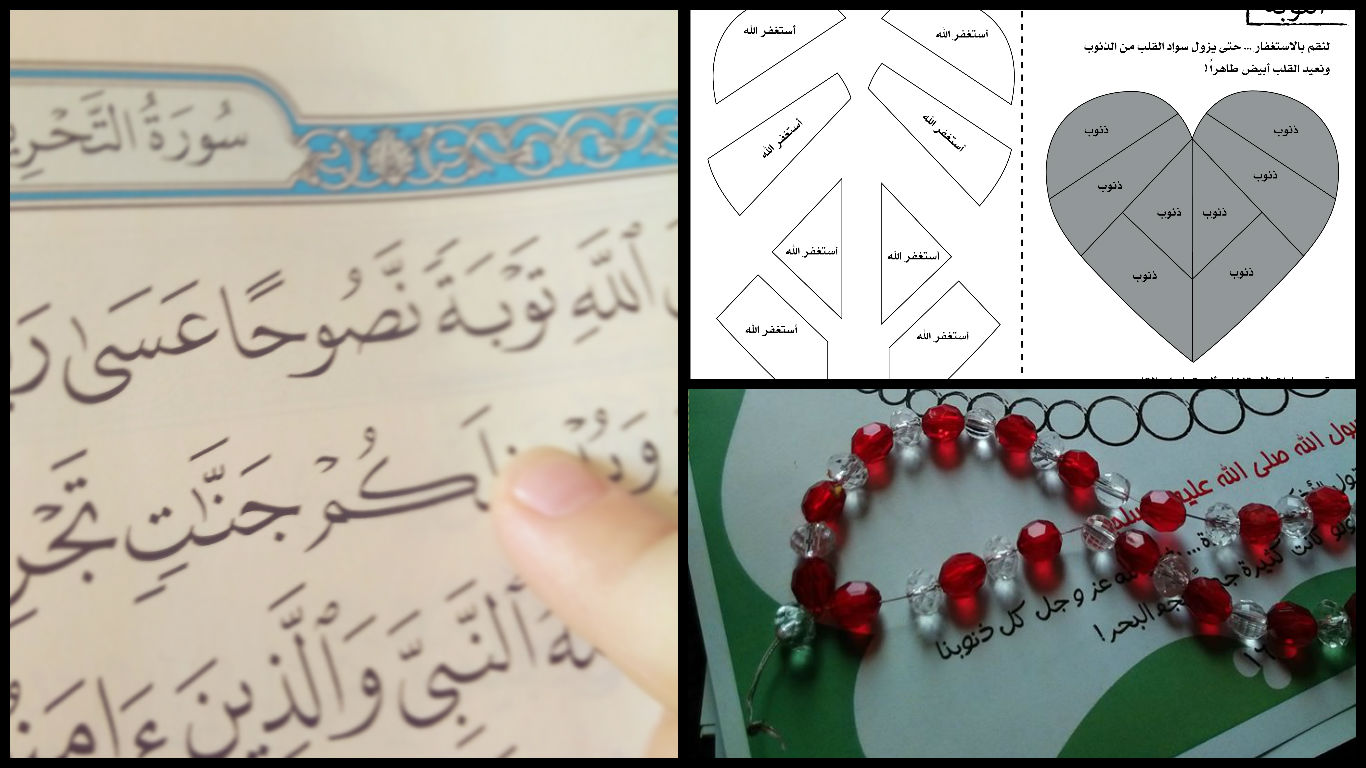 سُورَةُ التَّحْرِي
ٱللَّهِ تَوْبَةً نَّصُوحًا عَسَىٰ رَ
كُمْ جَنَّٰتٍ تَجْرِ
ٱلنَّبِيَّ وَٱلَّذِينَ ءَامَنُ
التوبة
لنقم بالاستغفار ... حتى يزول سواد القلب من الذنوب
ونعيد القلب أبيض طاهراً!
أستغفر الله
أستغفر الله
أستغفر الله
أستغفر الله
أستغفر الله
أستغفر الله
أستغفر الله
أستغفر الله
ذنوب
ذنوب
ذنوب
ذنوب
ذنوب
ذنوب
ذنوب
ذنوب
ول الله صلى الله عليه وسلم
كانت كثيرة
عز و جل كل ذنوبنا
البحر!